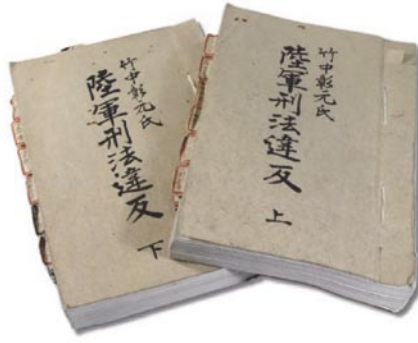 竹中彰元氏
陸軍刑法違反
上
竹中彰元氏
陸軍刑法違反
下